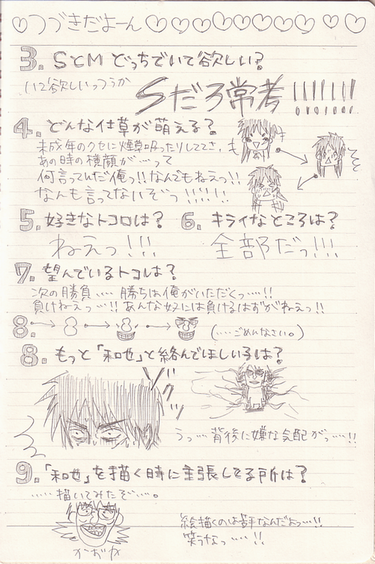 つづきだよーん
3. SとMどっちでいて欲しい?
いて欲しいっつうか
Sだろ常考!!!!!!!
4. どんな仕草が萌える?
未成年のクセに煙草吸ったりしてさ、
あの時の横顔が…って
何言ってんだ俺っ!!なんでもねぇっ!!
なんも言ってないぞっ!!!!!
5. 好きなトコロは?
ねぇっ!!!
6. キライなところは?
全部だっ!!!
7. 望んでいるトコは?
次の勝負…. 勝ちは俺がいただくっ…!!
負けねぇっ…!! あんな奴には負けるはずがねぇっ!!
8.→3→8→8→
(….ごめんなさい。)
8. もっと「和也」と絡んでほしい子は?
ビクッ
うっ…背後に嫌な気配がっ…!!
9. 「和也」を描く時に主張してる所は?
……描いてみたぞ….。
かおか
絵描くのは苦手なんだよっ…!!
笑うなっ….!!